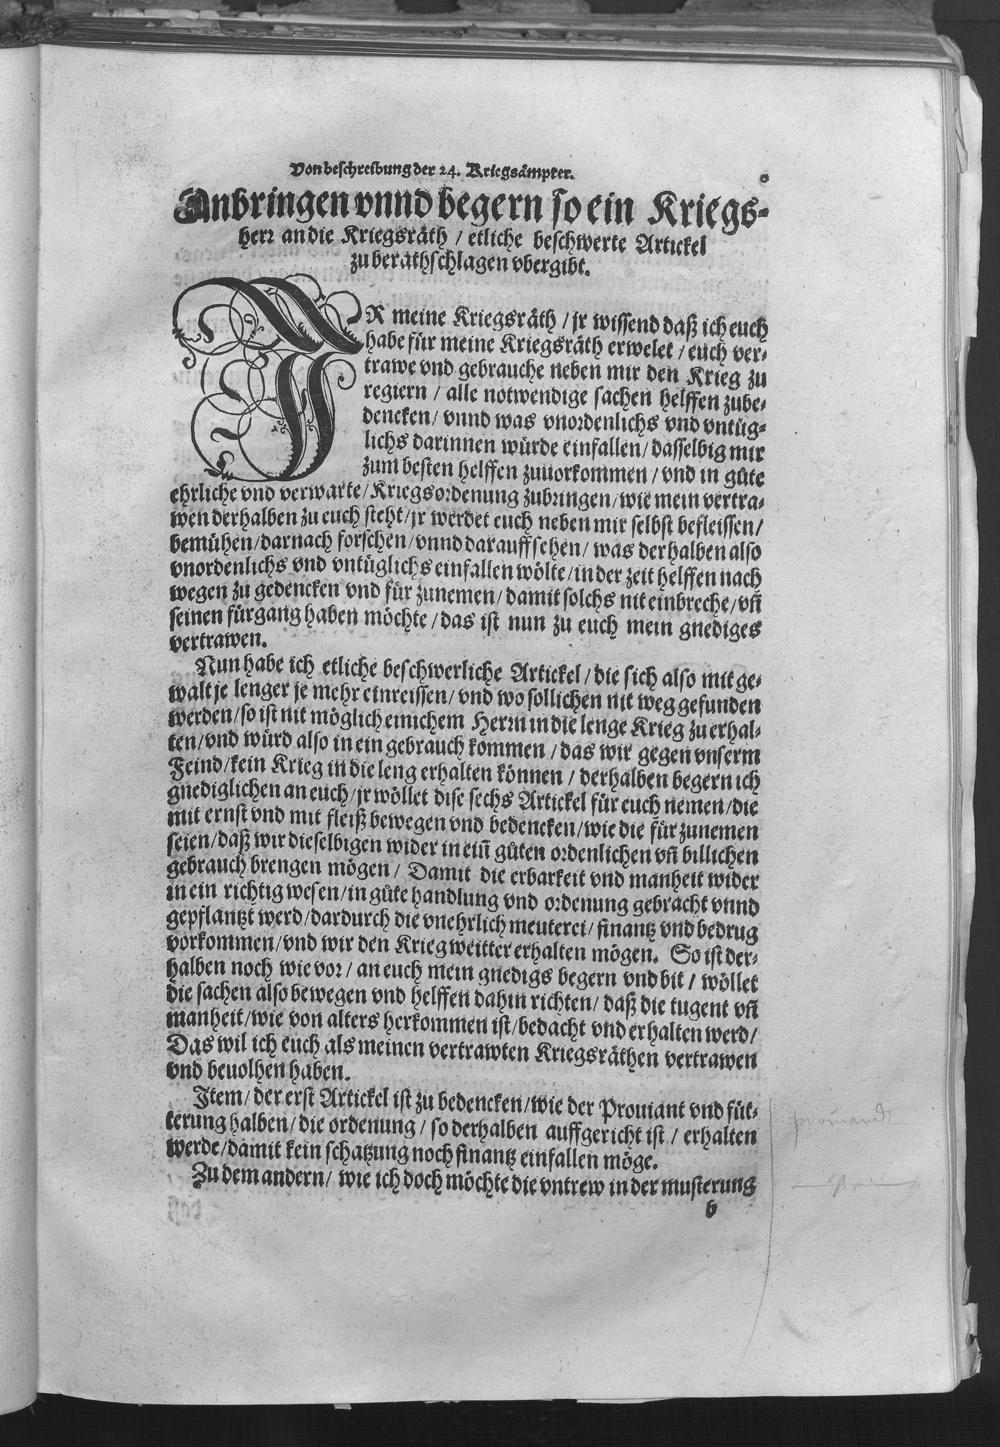 Von beschreibung der 24. Kriegsämpter.
Anbringen vnnd begern so ein Kriegs-
herr an die Kriegsräth / etliche beschwerte Artickel
zu berathschlagen vbergibt.
IR meine Kriegsräth / jr wissend daß ich euch
habe für meine Kriegsräth erwelet / euch ver-
trawe vnd gebrauche neben mir den Krieg zu
regiern / alle notwendige sachen helffen zube-
dencken / vnnd was vnordenlichs vnd vntüg-
lichs darinnen würde einfallen / dasselbig mir
zum besten helffen zuuorkommen / vnd in gůte
ehrliche vnd verwarte / Kriegsordenung zubringen / wie mein vertra-
wen derhalben zu euch steht / jr werdet euch neben mir selbst befleissen /
bemühen / darnach forschen / vnnd darauff sehen / was derhalben also
vnordenlichs vnd vntüglichs einfallen wölte / in der zeit helffen nach
wegen zu gedencken vnd für zunemen / damit solchs nit einbreche / vñ
seinen fürgang haben möchte / das ist nun zu euch mein gnediges
vertrawen.
Nun habe ich etliche beschwerliche Artickel / die sich also mit ge-
walt je lenger je mehr einreissen / vnd wo sollichen nit weg gefunden
werden / so ist nit möglich einichem Herrn in die lenge Krieg zu erhal-
ten / vnd würd also in ein gebrauch kommen / das wir gegen vnserm
Feind / kein Krieg in die leng erhalten können / derhalben begern ich
gnediglichen an euch / jr wöllet dise sechs Artickel für euch nemen / die
mit ernst vnd mit fleiß bewegen vnd bedencken / wie die für zunemen
seien / daß wir dieselbigen wider in eiñ gůten ordenlichen vñ billichen
gebrauch brengen mögen / Damit die erbarkeit vnd manheit wider
in ein richtig wesen / in gůte handlung vnd ordenung gebracht vnnd
gepflantzt werd / dardurch die vnehrlich meuterei / finantz vnd bedrug
vorkommen / vnd wir den Krieg weitter erhalten mögen. So ist der-
halben noch wie vor / an euch mein gnedigs begern vnd bit / wöllet
die sachen also bewegen vnd helffen dahin richten / daß die tugent vñ
manheit / wie von alters herkommen ist / bedacht vnd erhalten werd /
Das wil ich euch als meinen vertrawten Kriegsräthen vertrawen
vnd beuolhen haben.
Item / der erst Artickel ist zu bedencken / wie der Prouiant vnd füt-
terung halben / die ordenung / so derhalben auffgericht ist / erhalten
werde / damit kein schatzung noch finantz einfallen möge.
Zu dem andern / wie ich doch möchte die vntrew in der musterung
b